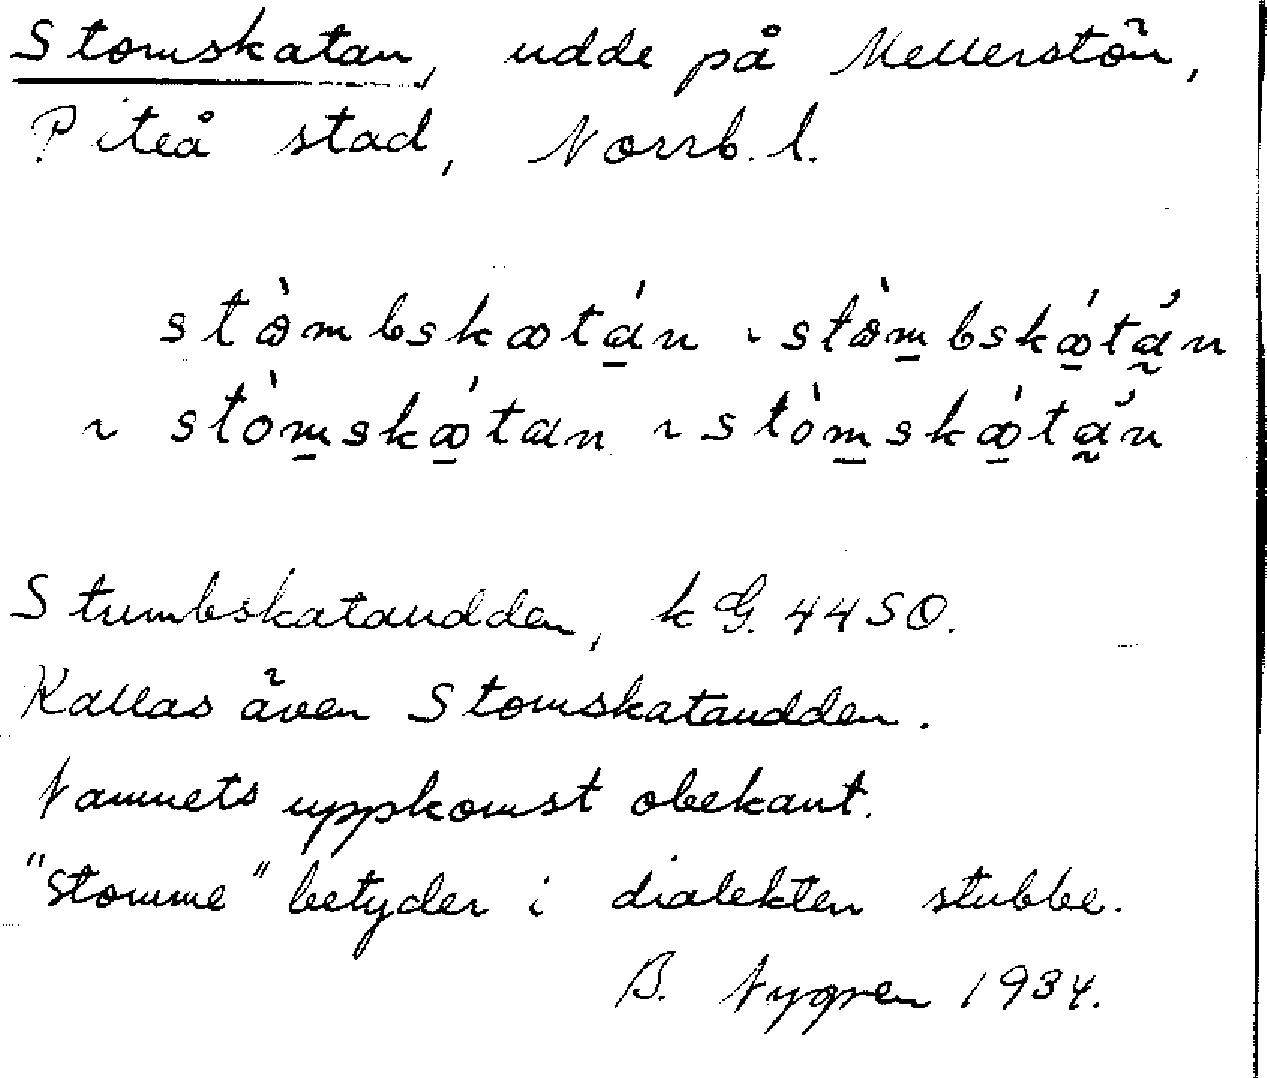 Stomskatan, udde på Mellerstön,
Piteå stad, Norrb. l.
stòmbskatán ~ stòmbskátán
~ stòmskátan ~ stòmskátán
Stumbskataudden, k G. 4450.
Kallas även Stomskataudden.
Namnets uppkomst obekant.
"stomme" betyder i dialekten stubbe.
B. Nygren 1934.